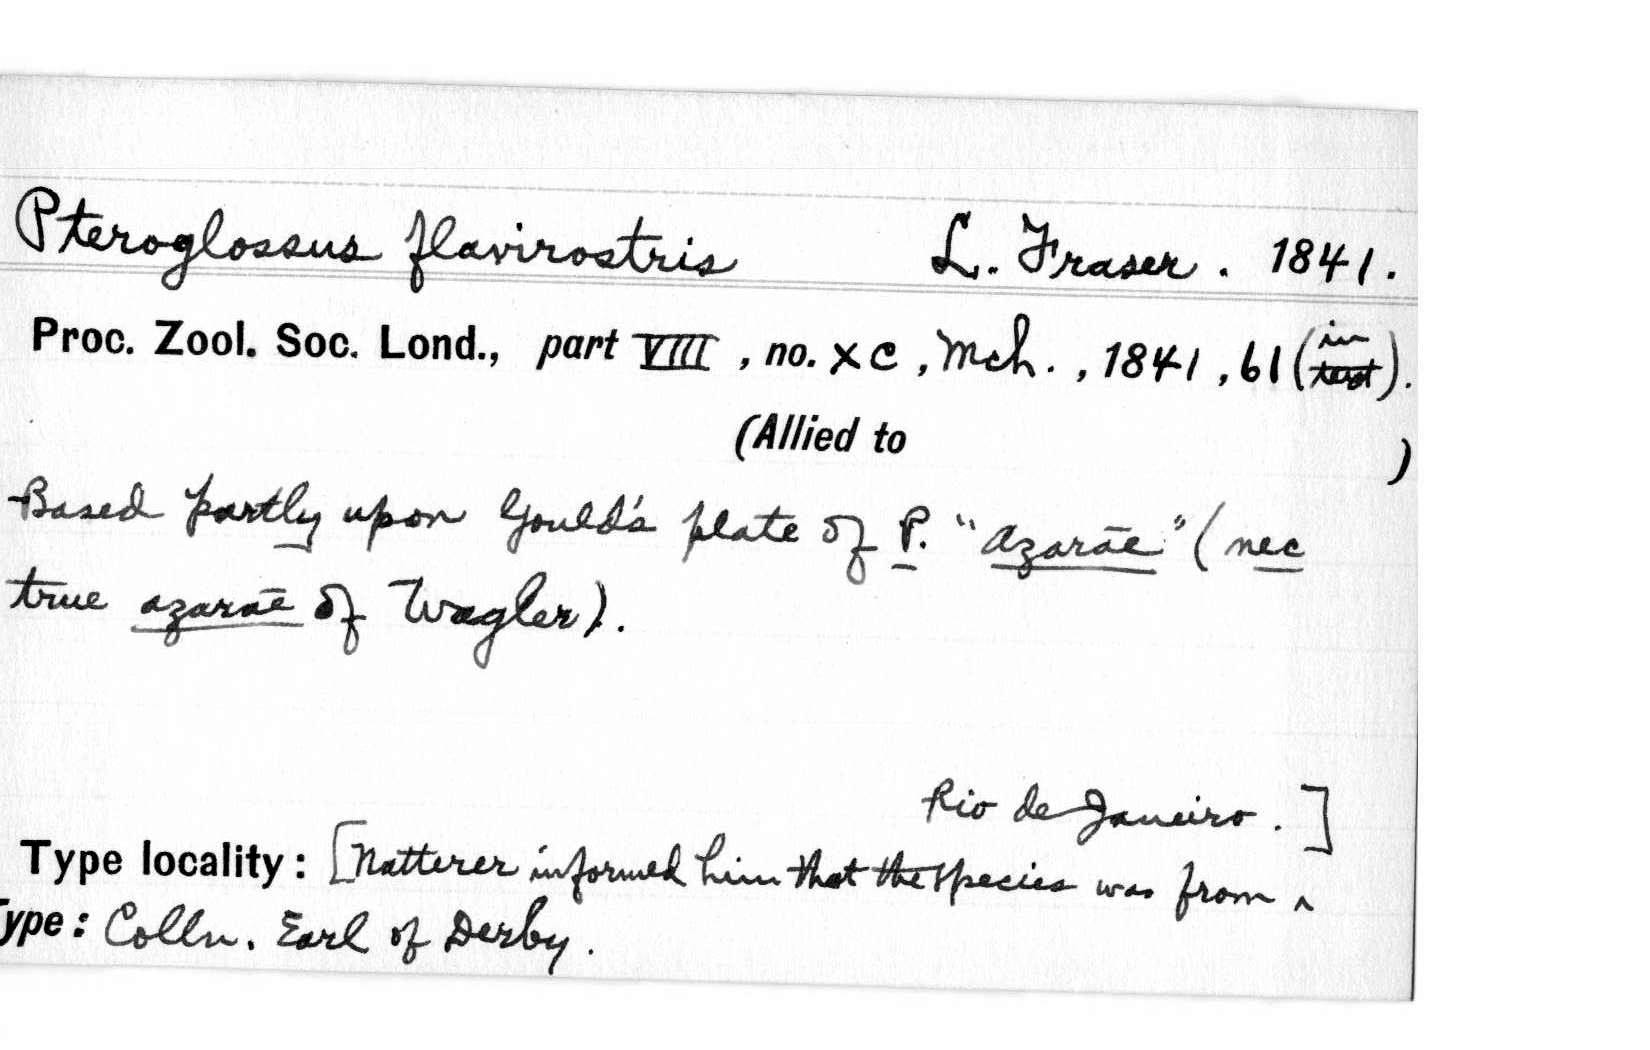 Pteroglossus flavirostris L. Fraser. 1841.
Proc. Zool. Soc. Lond., part VIII, no. XC, Mch., 1841, 61 (in text).
(Allied to )
Based partly upon Gould's plate of P. "azarae" (nec
true azarae of Wagler).
Rio de Janeiro.]
Type locality: [Natterer informed him that the species was from ^
Type: Colln. Earl of Derby.